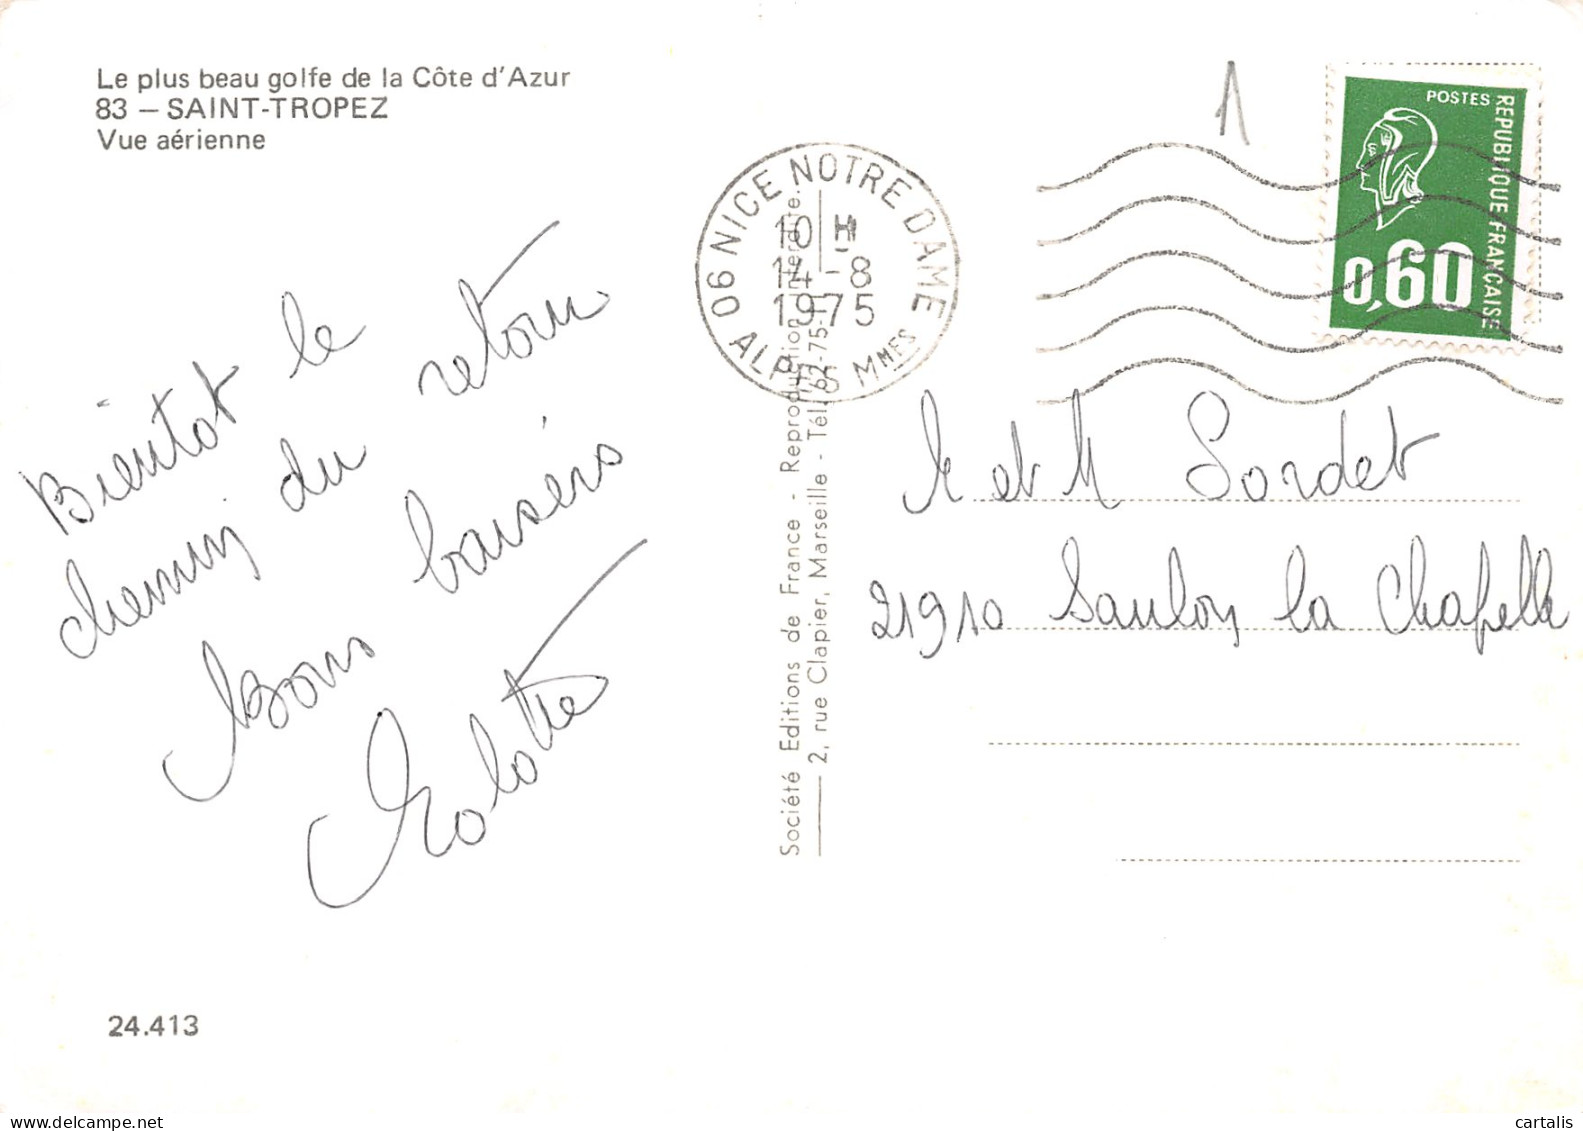 Le plus beau golfe de la Côte d'Azur
83 – SAINT-TROPEZ
Vue aérienne
06 NICE NOTRE DAME
10 H
14-8
1975
ALPES MMES
1
POSTES
REPUBLIQUE FRANÇAISE
0,60
Bientot le
chemin du retour
Bons baisers
M et M Sordet
21910 Saulon la Chapelle
Société Editions de France - Reproduction interdite.
2, rue Clapier, Marseille - Tél. 62-75-
24.413
cartalis